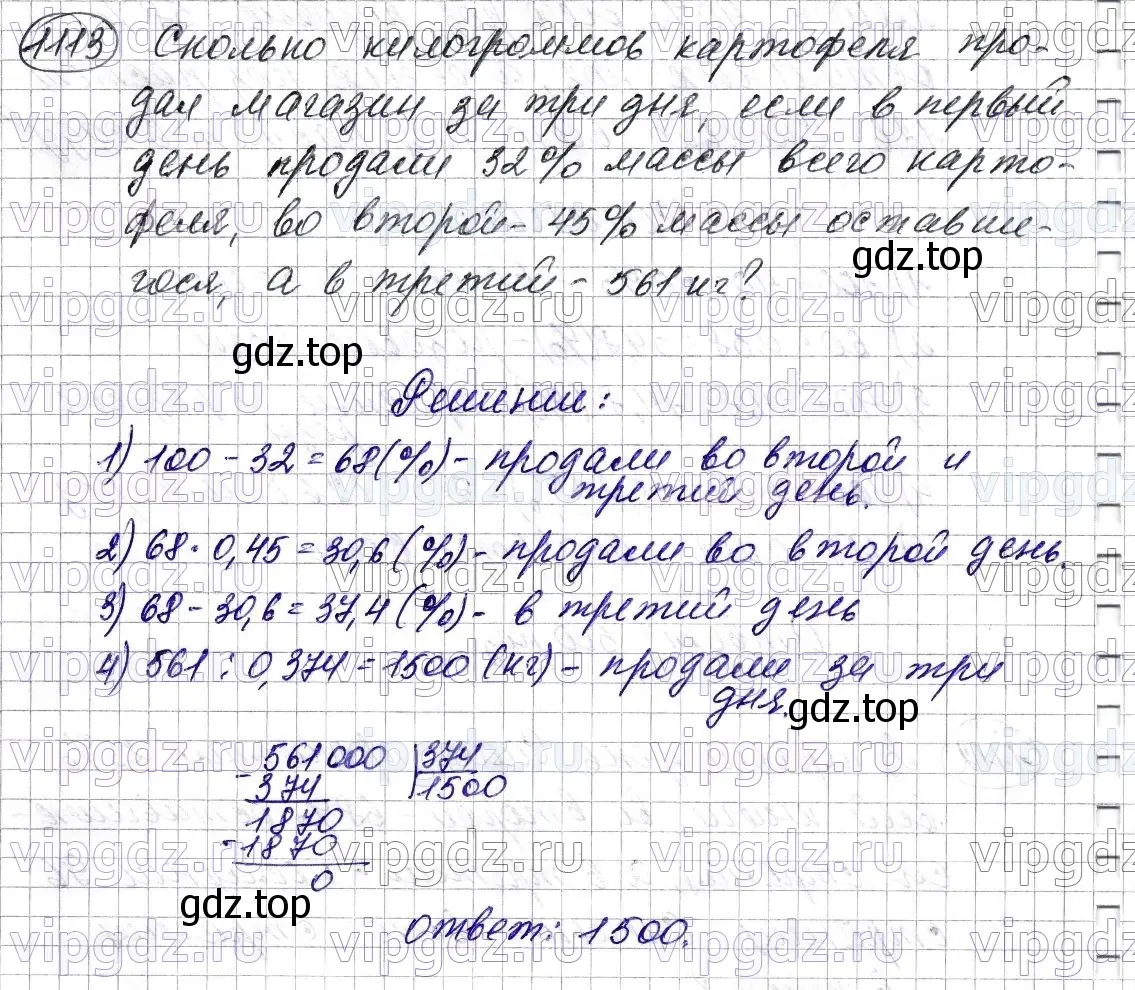 1113 Сколько килограммов картофеля про-
дал магазин за три дня, если в первый
день продали 32% массы всего карто-
феля, во второй - 45% массы оставше-
гося, а в третий - 561 кг?
gdz.top
gdz.top
Решение:
1) 100 - 32 = 68 (%) - продали во второй и
третий день.
2) 68 · 0,45 = 30,6 (%) - продали во второй день.
3) 68 - 30,6 = 37,4 (%) - в третий день
4) 561 : 0,374 = 1500 (кг) - продали за три
дня.
gdz.top
561000 374
- 374 1500
1870
- 1870
0
gdz.top
Ответ: 1500.
vipgdz.ru